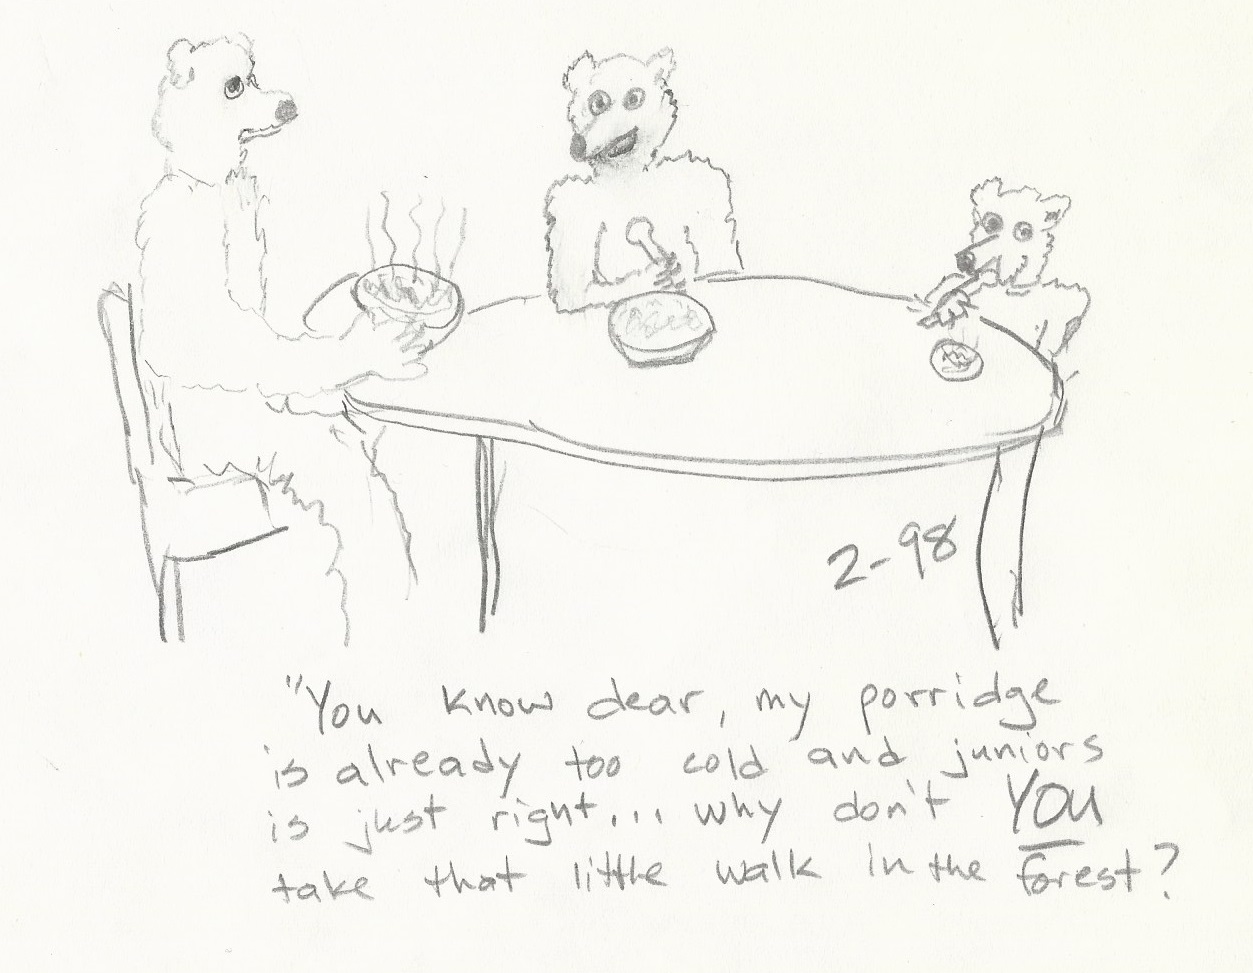 2-98
"You know dear, my porridge
is already too cold and juniors
is just right... why don't YOU
take that little walk in the forest?